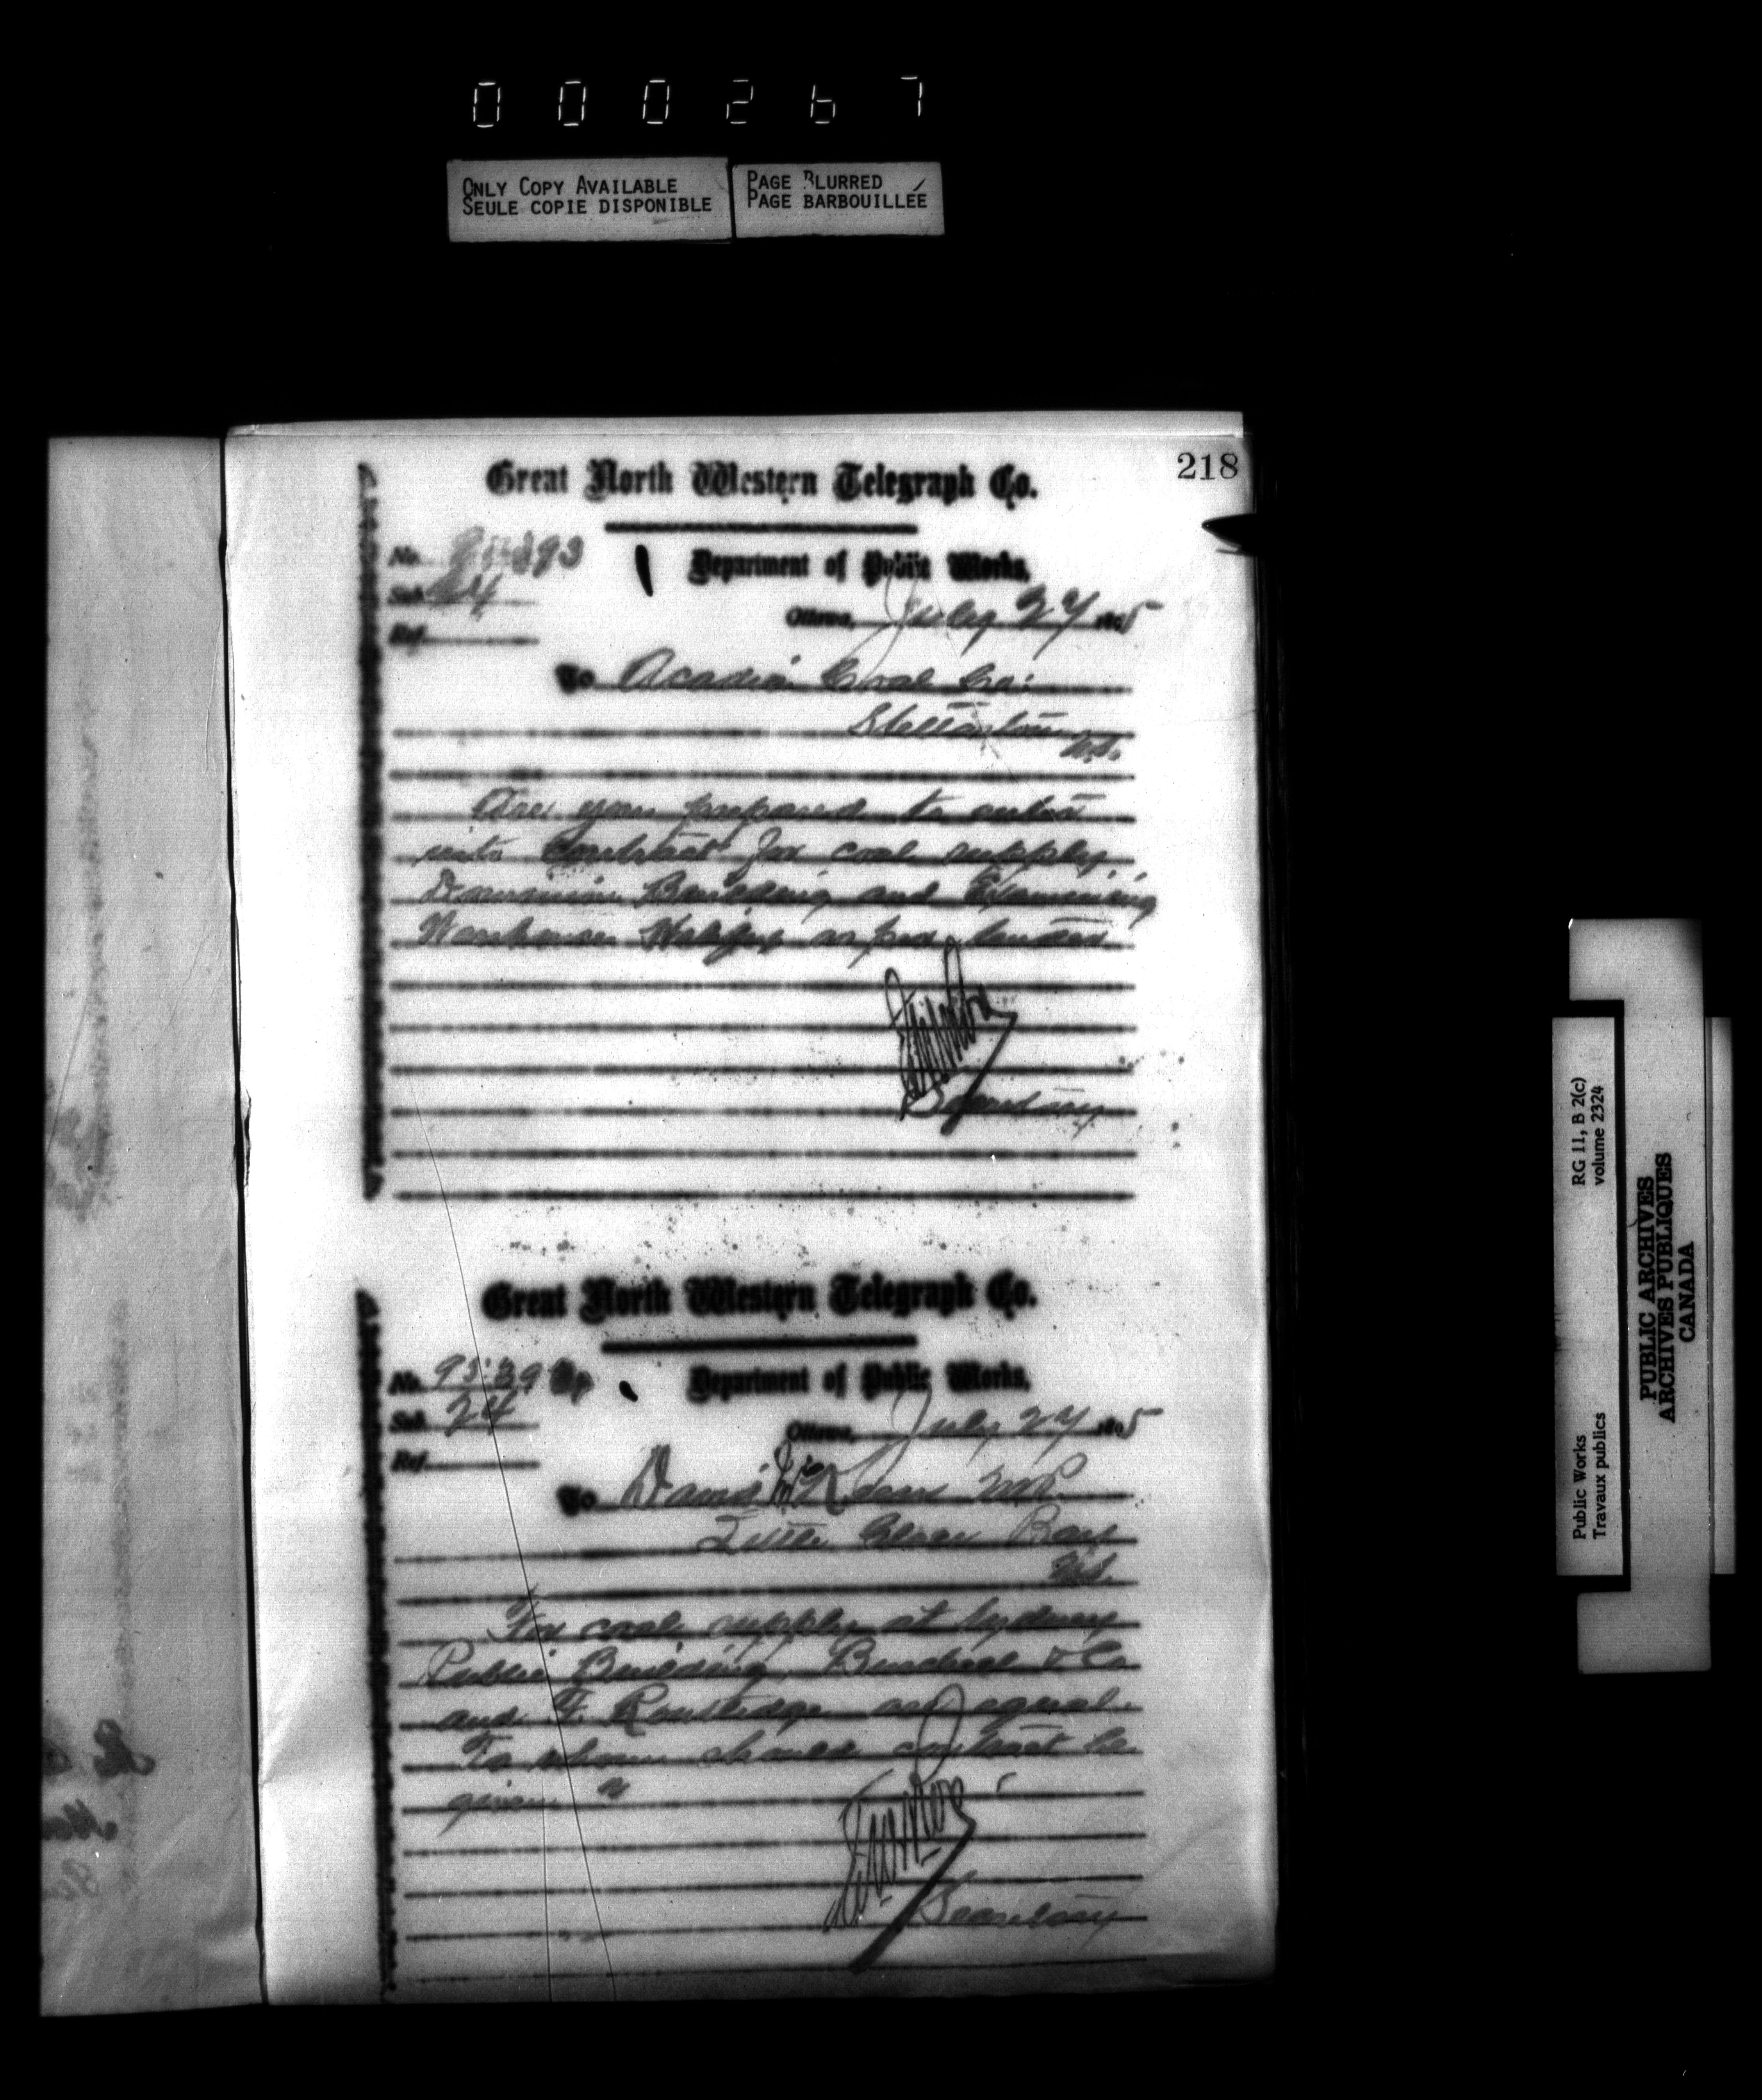 000267
ONLY COPY AVAILABLE
SEULE COPIE DISPONIBLE
PAGE BLURRED
PAGE BARBOUILLÉE
218
Great North Western Telegraph Co.
No.
Department of Public Works,
Sub. 24
Ottawa, July 27 5
Ref.
To Acadia Coal Co.
Stellarton
N.S.
Are you prepared to enter
into contract for coal supply
Dominion Building and Examining
Warehouse Halifax as per tender
Secretary
Great North Western Telegraph Co.
No.
Department of Public Works,
Sub. 24
Ottawa, July 27 5
Ref.
To David McKeen M.P.
Little Glace Bay
N.S.
For coal supply at Sydney
Public Building, Burchell & Co
and F. Routledge are equal.
To whom should contract be
given ?
Secretary
RG 11, B 2(c)
volume 2324
Public Works
Travaux publics
PUBLIC ARCHIVES
ARCHIVES PUBLIQUES
CANADA